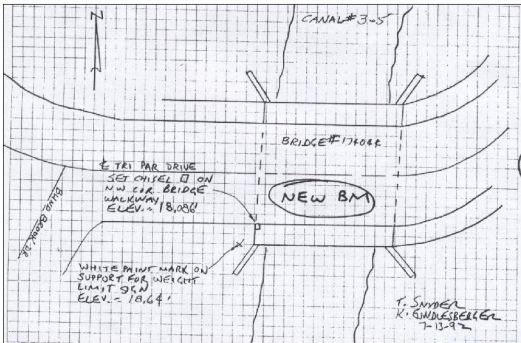 N
CANAL # 3-5
BRIDGE # 174044
℄ TRI PAR DRIVE
SET CHISEL □ ON
NW COR. BRIDGE
WALKWAY
ELEV. = 18.096'
NEW BM
BLIND BROOK DR
WHITE PAINT MARK ON
SUPPORT FOR WEIGHT
LIMIT SIGN
ELEV. = 18.64'
T. SNYDER
K. GINDLESBERGER
7-13-92